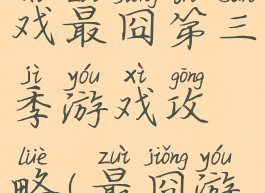 戏最囧第三
jì yóu xì gōng
季游戏攻
lüè zuì jiǒng yóu
略(最囧游